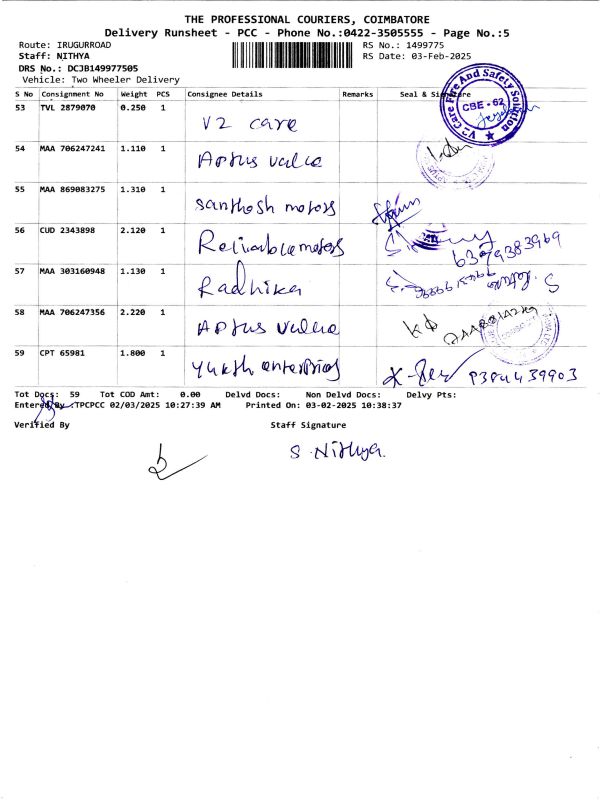 THE PROFESSIONAL COURIERS, COIMBATORE
Delivery Runsheet - PCC - Phone No.:0422-3505555 - Page No.:5
Route: IRUGURROAD RS No.: 1499775
Staff: NITHYA RS Date: 03-Feb-2025
DRS No.: DCJB149977505
Vehicle: Two Wheeler Delivery
S No Consignment No Weight PCS Consignee Details Remarks Seal & Signature
53 TVL 2879070 0.250 1 V2 care
V2 Care Fire And Safety Solution CBE-62
54 MAA 706247241 1.110 1 Aptus value
55 MAA 869083275 1.310 1 Santhosh motors
56 CUD 2343898 2.120 1 Reliable motors 6379383969
57 MAA 303160948 1.130 1 Radhika
58 MAA 706247356 2.220 1 Aptus value
59 CPT 65981 1.800 1 Yukth enterprises
Tot Docs: 59 Tot COD Amt: 0.00 Delvd Docs: Non Delvd Docs: Delvy Pts:
Entered By :TPCPCC 02/03/2025 10:27:39 AM Printed On: 03-02-2025 10:38:37
Verified By Staff Signature
S. Nithya.